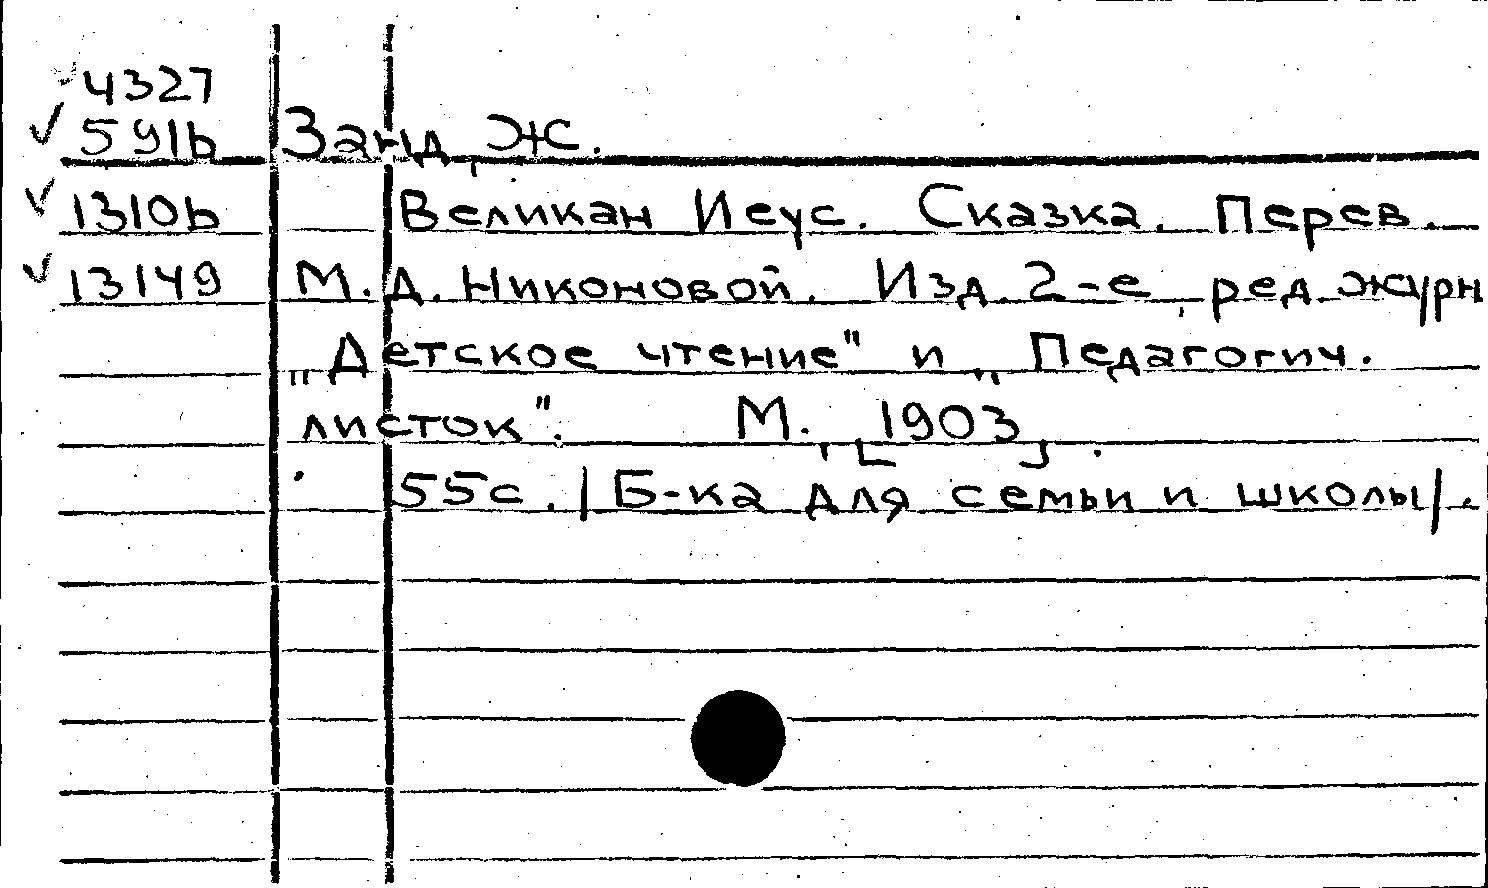 4327
591b Занд, Ж.
1310b Великан Иеус. Сказка. Перев.
13149 М.Д. Никоновой. Изд. 2-е, ред. журн
„Детское чтение" и „Педагогич.
листок". М., [1903].
55с. /Б-ка для семьи и школы/.